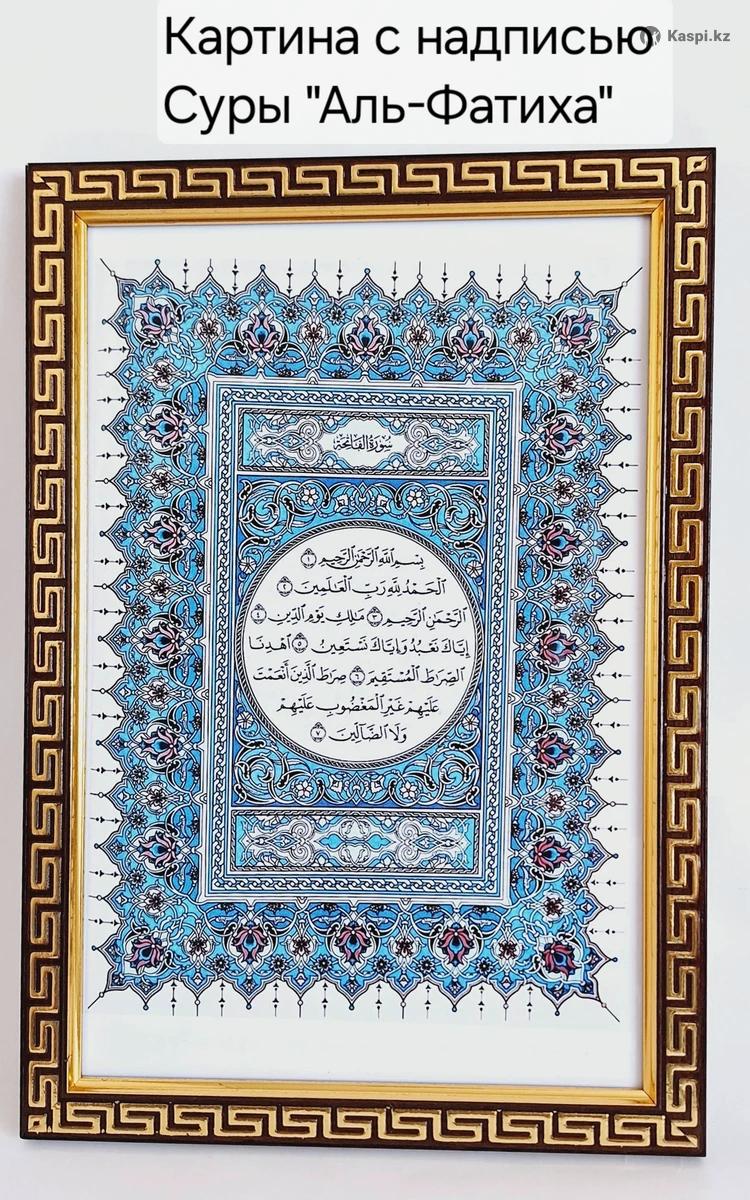 Картина с надписью
Kaspi.kz
Суры "Аль-Фатиха"
سُورَةُ الفَاتِحَةِ
بِسْمِ اللَّهِ الرَّحْمَٰنِ الرَّحِيمِ ١
الْحَمْدُ لِلَّهِ رَبِّ الْعَالَمِينَ ٢
الرَّحْمَٰنِ الرَّحِيمِ ٣ مَالِكِ يَوْمِ الدِّينِ ٤
إِيَّاكَ نَعْبُدُ وَإِيَّاكَ نَسْتَعِينُ ٥ اهْدِنَا
الصِّرَاطَ الْمُسْتَقِيمَ ٦ صِرَاطَ الَّذِينَ أَنْعَمْتَ
عَلَيْهِمْ غَيْرِ الْمَغْضُوبِ عَلَيْهِمْ
وَلَا الضَّالِّينَ ٧